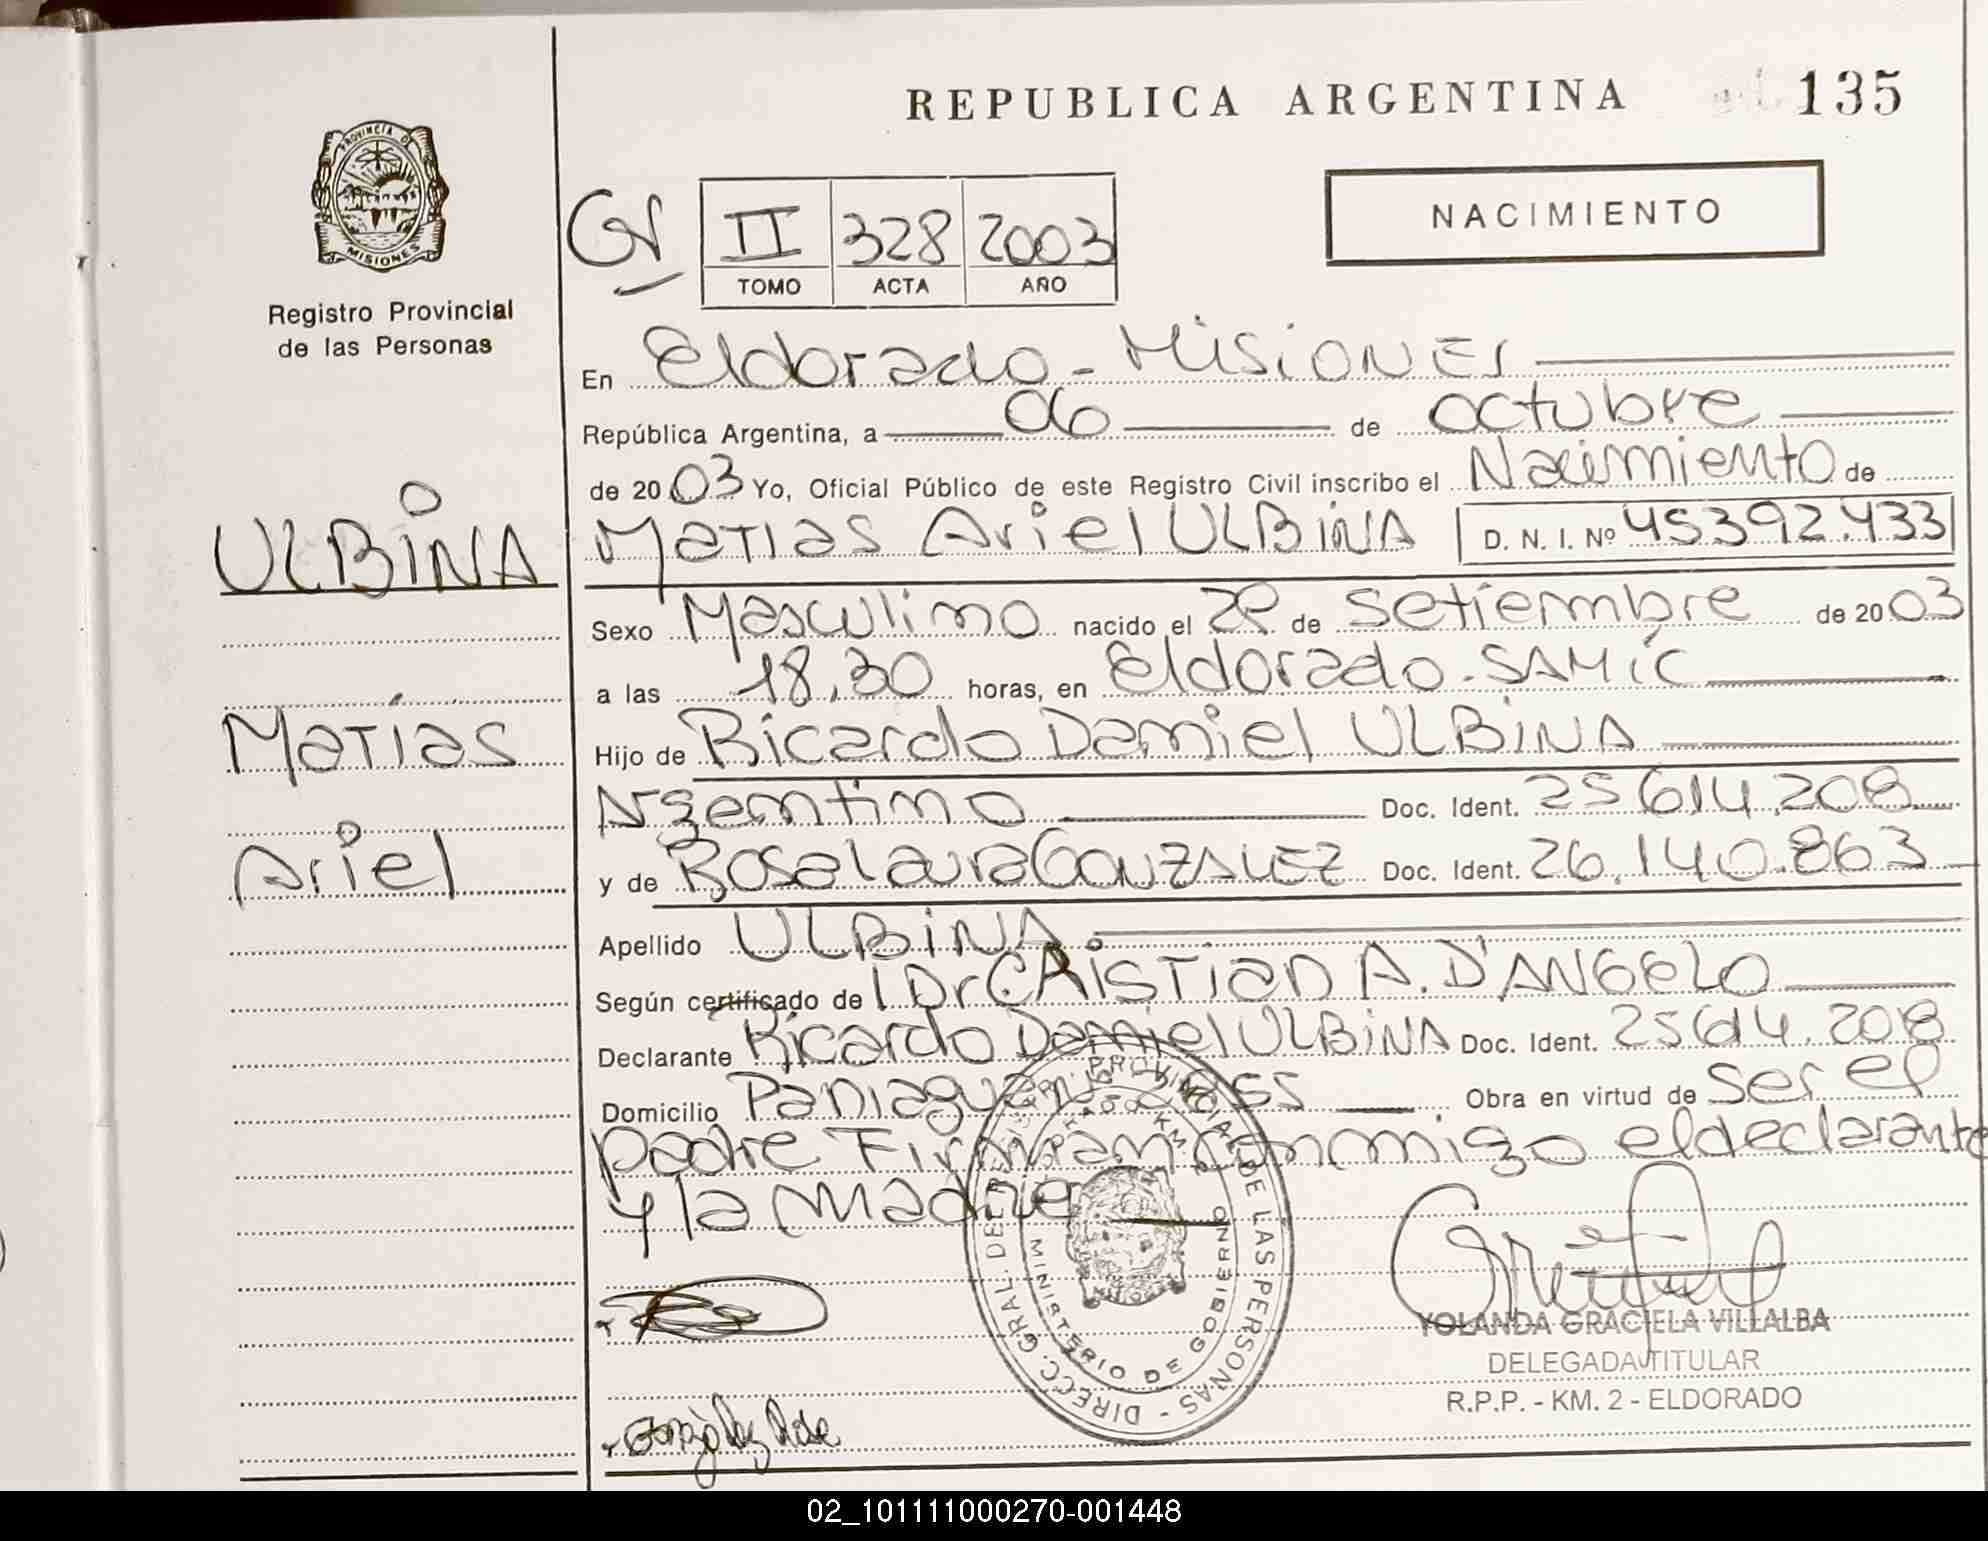 REPUBLICA ARGENTINA
135
PROVINCIA DE
MISIONES
Registro Provincial
de las Personas
II 328 2003
TOMO ACTA AÑO
NACIMIENTO
En Eldorado - Misiones
República Argentina, a 06 de octubre
de 2003 Yo, Oficial Público de este Registro Civil inscribo el Nacimiento de
Matias Ariel ULBINA D. N. I. Nº 45392.433
ULBINA
Matías
Ariel
Sexo Masculino nacido el de Setiembre de 2003
a las 18,30 horas, en Eldorado - SAMIC
Hijo de Ricardo Daniel ULBINA
Argentino Doc. Ident. 25614.208
y de Rosa Laura GONZALEZ Doc. Ident. 26.140.863
Apellido ULBINA.
Según certificado de Dr CRISTIAN A. D'ANGELO
Declarante Ricardo Daniel ULBINA Doc. Ident. 25614.208
Domicilio Obra en virtud de ser el
padre Firman conmigo el declarante
y la madre
DIRECC. GRAL. DE REG. PROVINCIAL DE LAS PERSONAS
MINISTERIO DE GOBIERNO
González Rosa
YOLANDA GRACIELA VILLALBA
DELEGADA TITULAR
R.P.P. - KM. 2 - ELDORADO
02_101111000270-001448